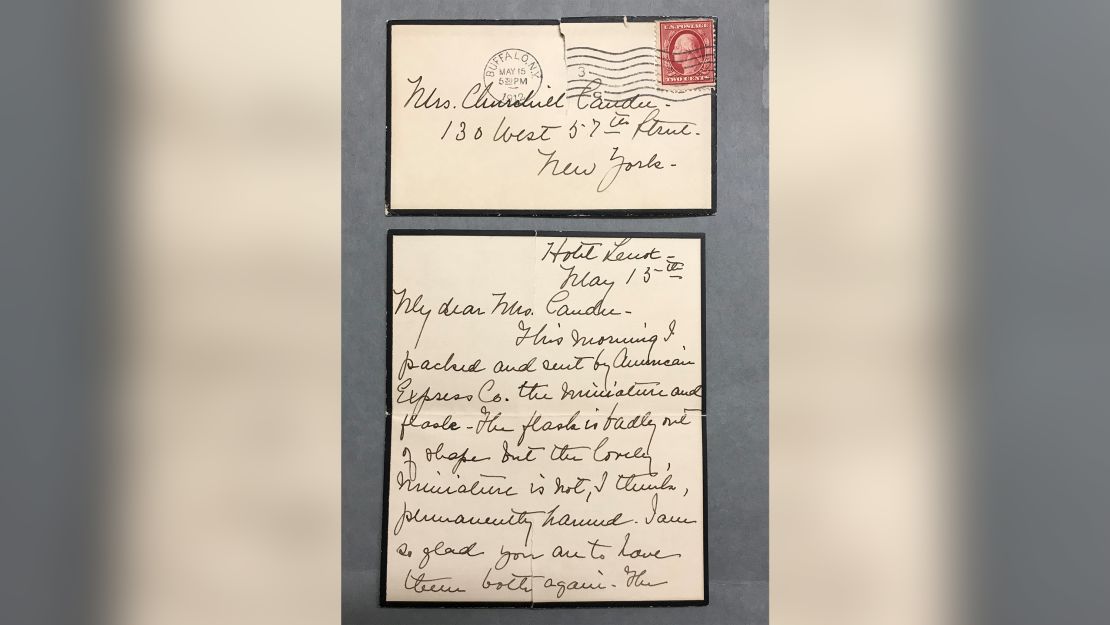 BUFFALO, N.Y.
MAY 15
5 30 PM
1912
3-
U.S. POSTAGE
TWO CENTS
Mrs. Churchill Candee -
130 West 57th Street -
New York -
Hotel Lenox -
May 15th
My dear Mrs. Candee -
This morning I
packed and sent by American
Express Co. the miniature and
flask - The flask is badly out
of shape but the lovely
miniature is not, I think,
permanently harmed. I am
so glad you are to have
them both again - The